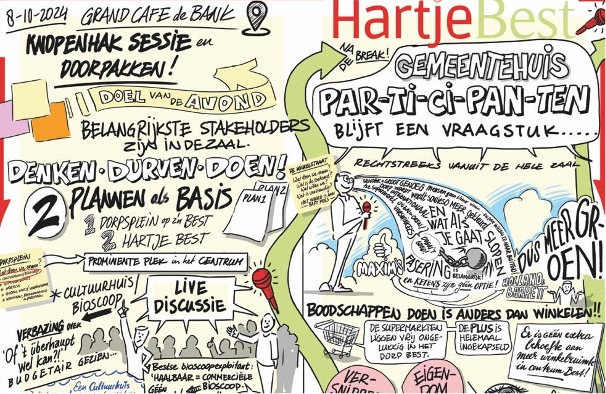 8-10-2024 GRAND CAFE de BANK
KNOPENHAK SESSIE en
DOORPAKKEN!
DOEL VAN DE AVOND
BELANGRIJKSTE STAKEHOLDERS
ZIJN IN DE ZAAL.
DENKEN · DURVEN · DOEN!
2 PLANNEN als BASIS
1 DORPSPLEIN op z'n BEST
2 HARTJE BEST
PLAN 1
PLAN 2
PROMINENTE PLEK in het CENTRUM
DORPSPLEIN
* CULTUURHUIS/
BIOSCOOP
VERBAZING OVER
'Of 't überhaupt
wel kan?!'
BUDGETAIR GEZIEN-
Een Cultuurhuis
LIVE
DISCUSSIE
Bestse bioscoopexploitant:
'HAALBAAR = COMMERCIËLE
GÉÉN BIOSCOOP-
HartjeBest
NA
DE BREAK!
GEMEENTEHUIS
PAR-TI-CI-PAN-TEN
BLIJFT EEN VRAAGSTUK.....
RECHTSTREEKS VANUIT DE HELE ZAAL
EN
WAT ALS
JE GAAT
SLOPEN
MAXIMA'S
en KETENS zijn géén OPTIE!
DUS MEER GR-
OEN!
BOODSCHAPPEN DOEN IS ANDERS DAN WINKELEN!!
DE SUPERMARKTEN
LIGGEN VRIJ ONGE-
LUKKIG IN HET
DORP BEST.
DE PLUS IS
HELEMAAL
INGEKAPSELD.
Er is géén extra
behoefte aan
meer winkelruimte
in centrum Best!
VER-
SNIPPE
EIGEN-
DOM